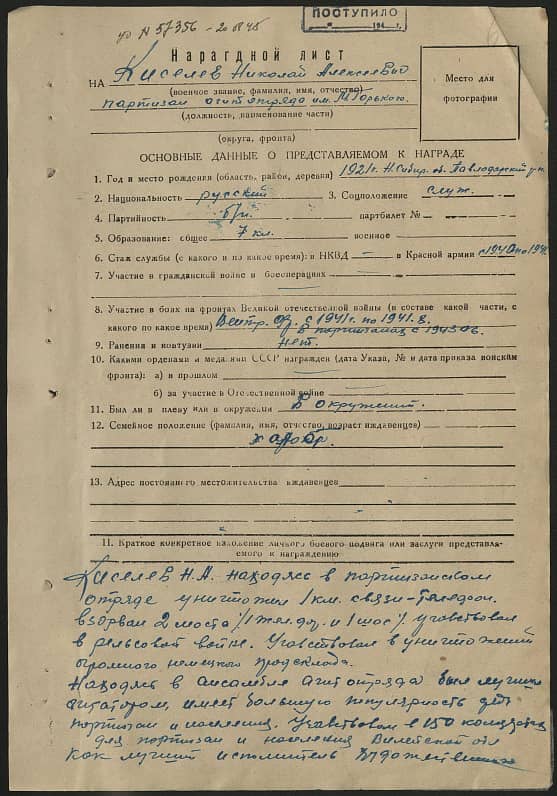 ПОСТУПИЛО
194 г.
Нараградной лист
НА Киселев Николай Алексеевич
(военное звание, фамилия, имя, отчество)
партизан агитотряда им. М. Горького.
(должность, наименование части)
(округа, фронта)
Место для
фотографии
ОСНОВНЫЕ ДАННЫЕ О ПРЕДСТАВЛЯЕМОМ К НАГРАДЕ
1. Год и место рождения (область, район, деревня) 1921 г. Н.Сибир. об. Павлодарский р-н
2. Национальность русский 3. Соцположение служ.
4. Партийность б/п. партбилет № —
5. Образование: общее 7 кл. военное
6. Стаж службы (с какого и по какое время): в НКВД — в Красной армии с 1940 по 1941
7. Участие в гражданской войне в боеоперациях
8. Участие в боях на фронтах Великой отечественной войны (в составе какой части, с
какого по какое время) с 1941 г. по 1941 г.
В партизанах с 1943
9. Ранения и контузии Нет.
10. Какими орденами и медалями СССР награжден (дата Указа, № и дата приказа войскам
фронта): а) в прошлом
б) за участие в Отечественной войне
11. Был ли в плену или в окружении В окружении.
12. Семейное положение (фамилия, имя, отчество, возраст иждавенцев)
13. Адрес постоянного местожительства иждавенцев
II. Краткое конкретное изложение личного боевого подвига или заслуги представля-
емого к награждению
Киселев Н.А. находясь в партизанском
отряде уничтожил 1 км. связи-телефон.
взорвал 2 моста 1 жел.дор. и 1 шос участвовал
в рельсовой войне. Участвовал в уничтожении
огромного немецкого продсклада.
Находясь в ансамбле агитотряда был лучшим
агитатором, имеет большую популярность для
партизан и населения. Участвовал в 150 концертах
для партизан и населения Вилейской обл
как лучший исполнитель художественных